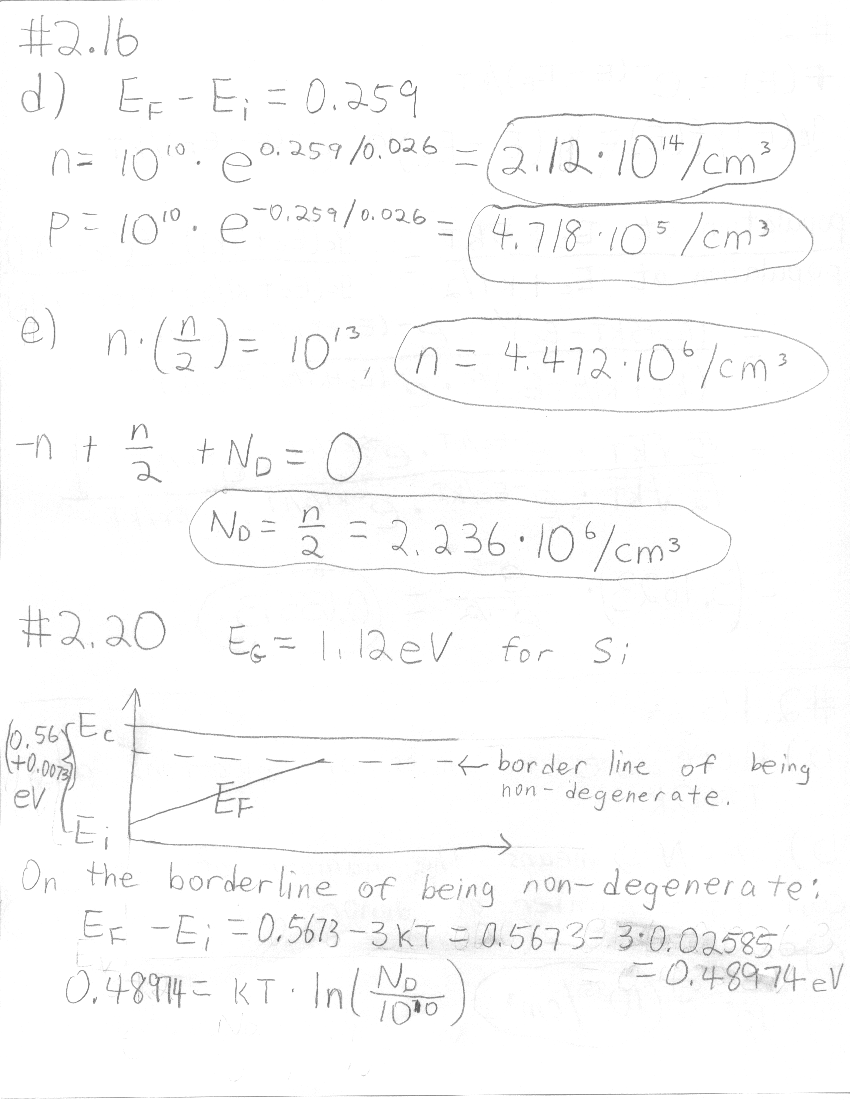 #2.16
d) E_F - E_i = 0.259
n = 10^10 · e^0.259/0.026 = 2.12·10^14/cm^3
p = 10^10 · e^-0.259/0.026 = 4.718·10^5 /cm^3
e) n·(n/2) = 10^13, n = 4.472·10^6/cm^3
-n + n/2 + N_D = 0
N_D = n/2 = 2.236·10^6/cm^3
#2.20 E_G = 1.12eV for Si
E_c
(0.56
+0.0073)
eV
E_i
E_F
← border line of being
non-degenerate.
On the borderline of being non-degenerate:
E_F - E_i = 0.5673 - 3KT = 0.5673 - 3·0.02585
= 0.48974 eV
0.48974 = KT · ln(N_D/10^10)